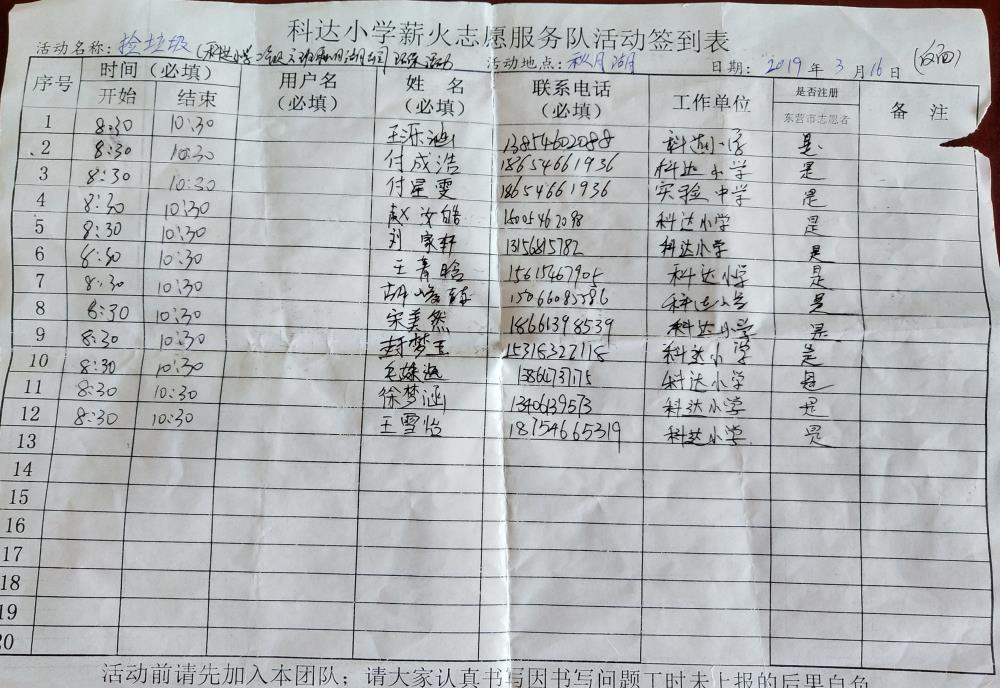 科达小学薪火志愿服务队活动签到表
活动名称：捡垃圾(科达小学 环保活动 活动地点：秋月湖 日期：2019年3月16日 (反面)
序号 时间（必填） 用户名（必填） 姓名（必填） 联系电话（必填） 工作单位 是否注册东营市志愿者 备注
开始 结束
1 8:30 10:30 王泺涵 13854602088 科达小学 是
2 8:30 10:30 付成浩 18654661936 科达小学 是
3 8:30 10:30 付星雯 18654661936 实验中学 是
4 8:30 10:30 赵汝皓 15005462098 科达小学 是
5 8:30 10:30 刘家轩 13156815782 科达小学 是
6 8:30 10:30 王菁晗 15615467905 科达小学 是
7 8:30 10:30 科达小学 是
8 8:30 10:30 宋美然 18661398539 科达小学 是
9 8:30 10:30 封梦玉 15318327118 科达小学 是
10 8:30 10:30 科达小学 是
11 8:30 10:30 徐梦涵 13406139573 科达小学 是
12 8:30 10:30 王雪怡 18754665319 科达小学 是
13
14
15
16
17
18
19
20
活动前请先加入本团队；请大家认真书写因书写问题工时未上报的后果自负